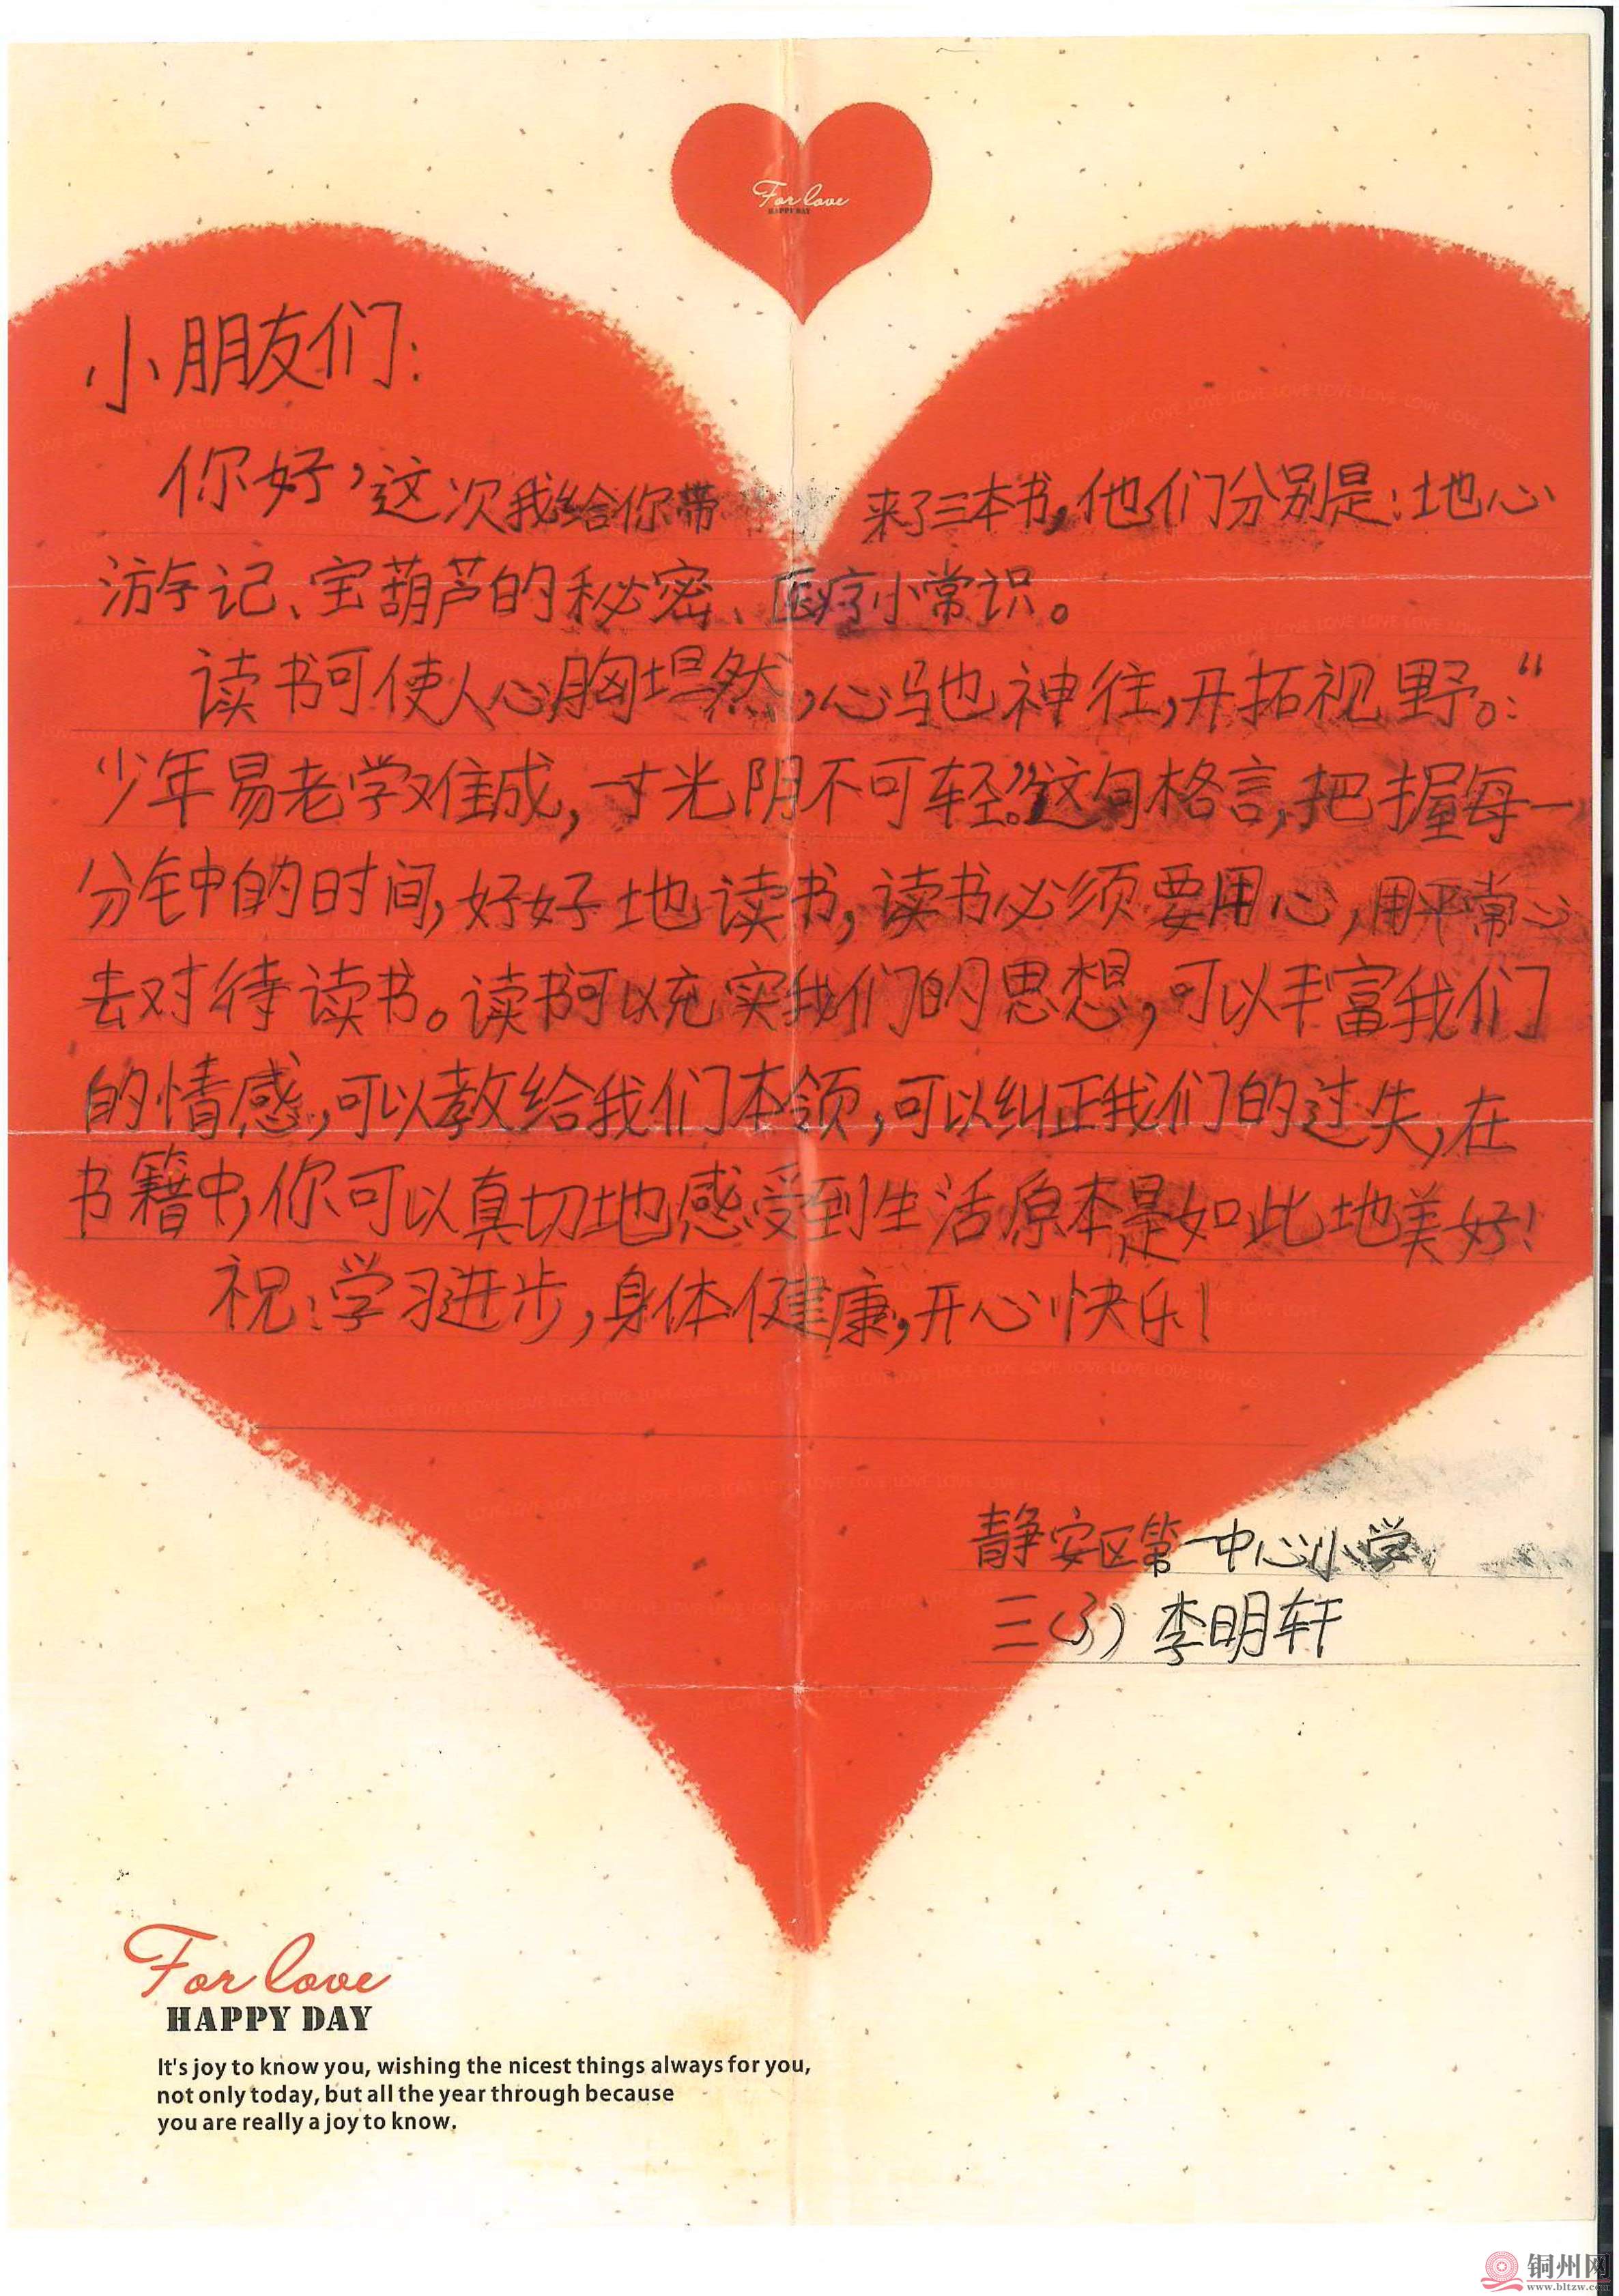 For love
HAPPY DAY
小朋友们：
你好，这次我给你带来了三本书，他们分别是：地心
游记、宝葫芦的秘密、医疗小常识。
读书可使人心胸坦然，心驰神往，开拓视野。：“
少年易老学难成，一寸光阴不可轻。”这句格言，把握每一
分钟的时间，好好地读书，读书必须要用心，用平常心
去对待读书。读书可以充实我们的思想，可以丰富我们
的情感，可以教给我们本领，可以纠正我们的过失，在
书籍中，你可以真切地感受到生活原本是如此地美好！
祝：学习进步，身体健康，开心快乐！
静安区第一中心小学
三（3）李明轩
For love
HAPPY DAY
It's joy to know you, wishing the nicest things always for you,
not only today, but all the year through because
you are really a joy to know.
铜州网
www.bltzw.com